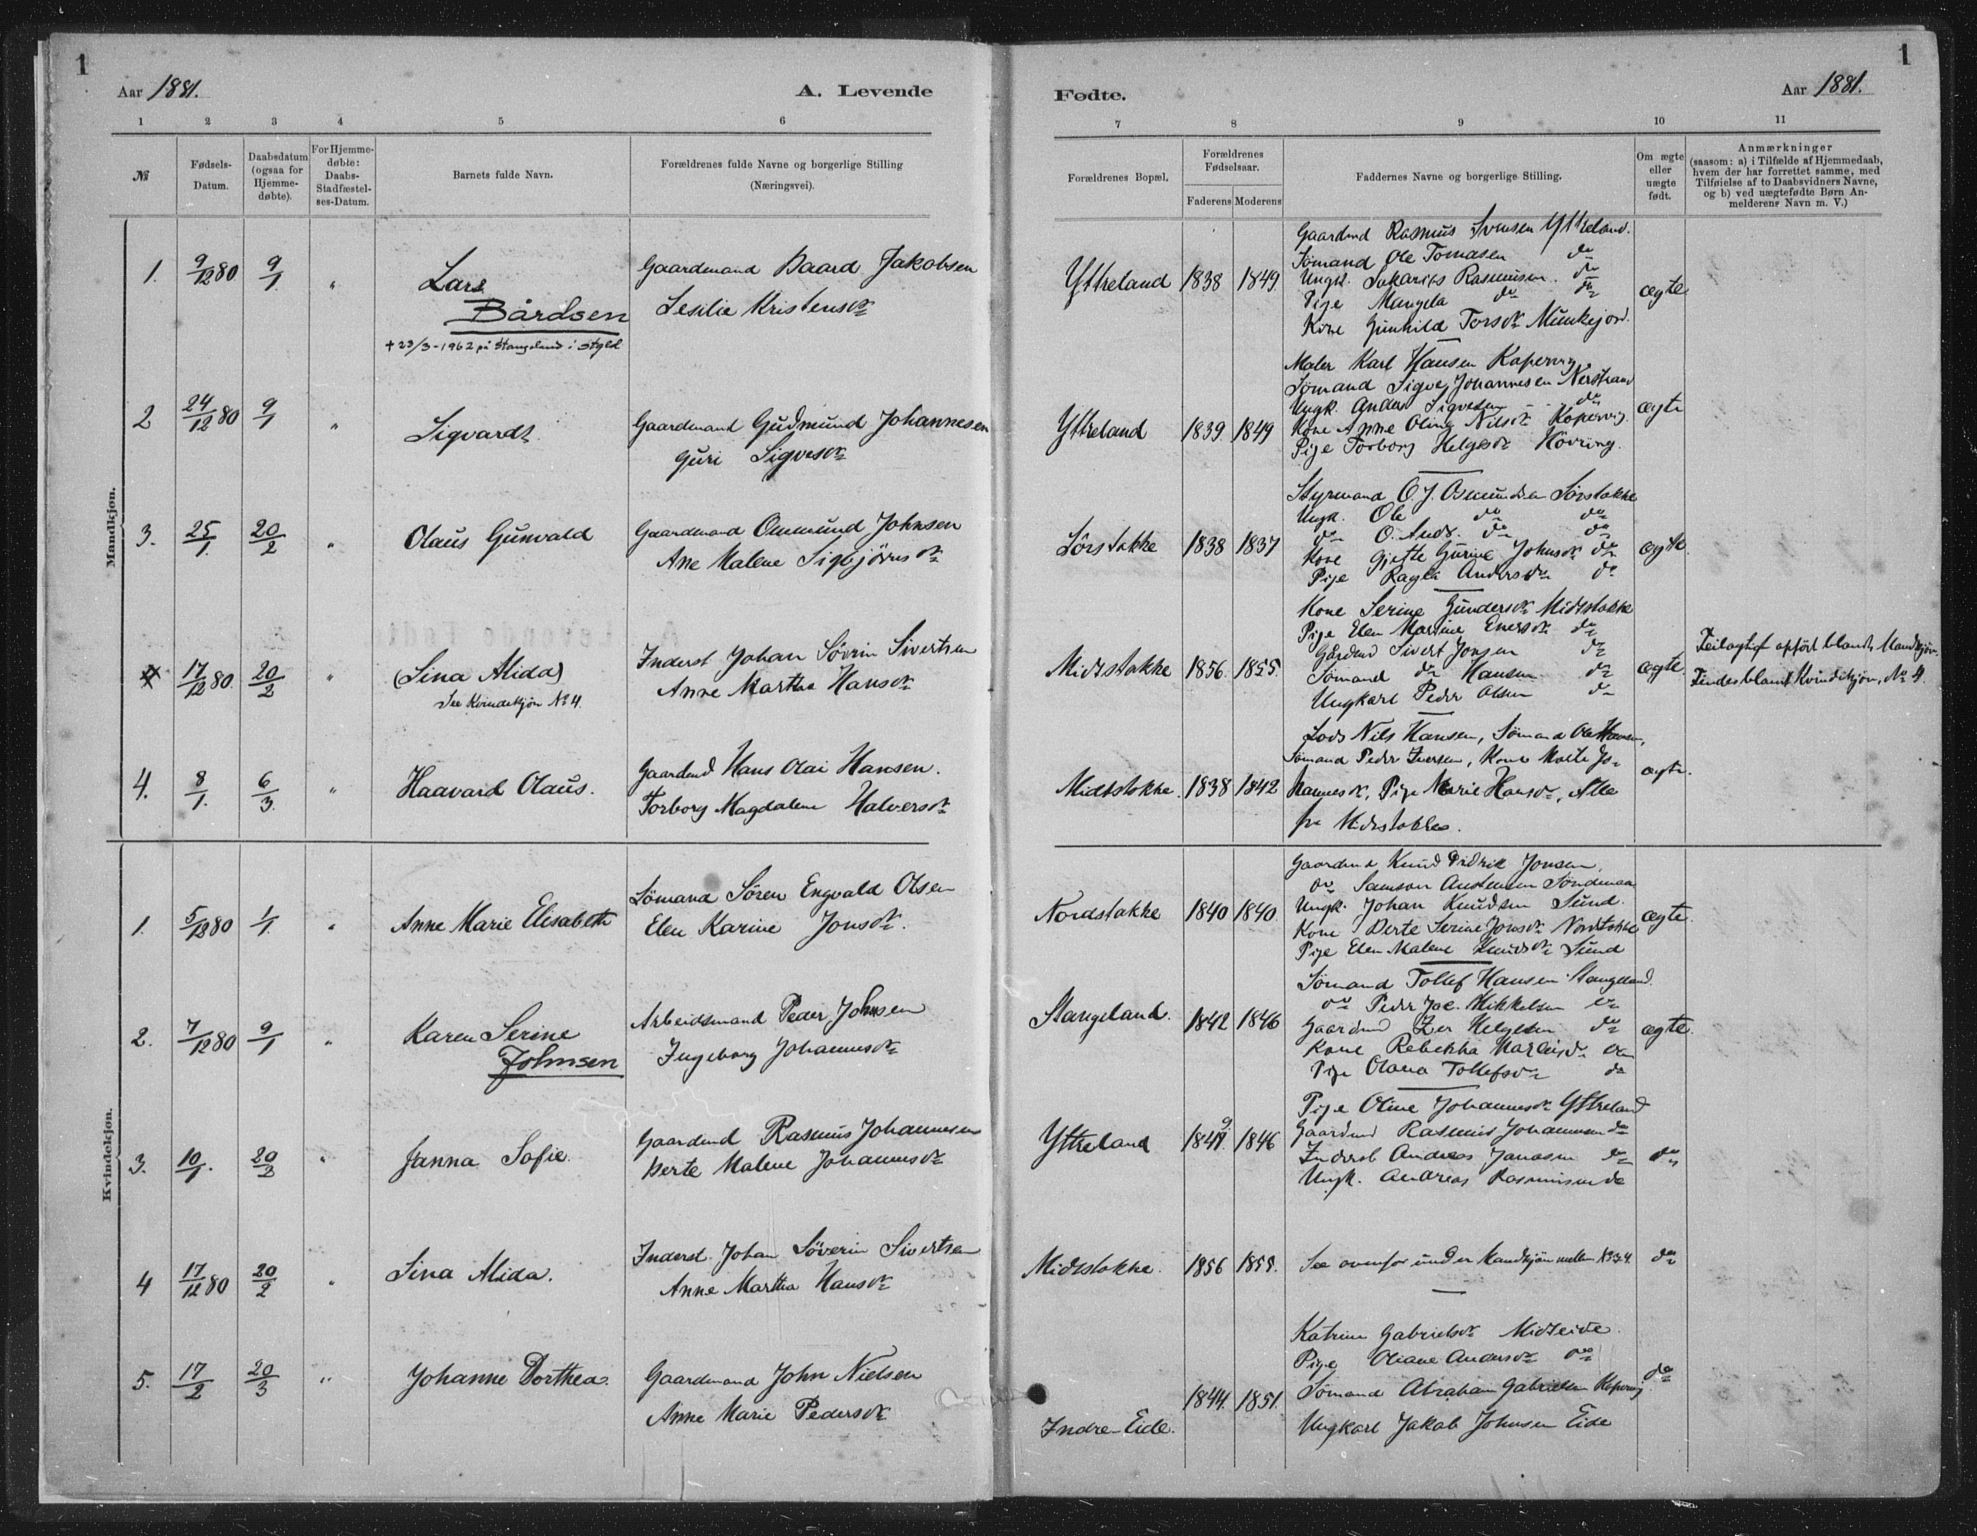 1
Aar 1881.
A. Levende
1 2 3 4 5 6
№
Fødsels-
Datum.
Daabsdatum
(ogsaa for
Hjemme-
døbte).
For Hjemme-
døbte:
Daabs-
Stadfæstel-
ses-Datum.
Barnets fulde Navn.
Forældrenes fulde Navne og borgerlige Stilling
(Næringsvei).
Mandkjøn.
1. 9/12 80 9/1 "
Lars
Bårdsen
+ 23/3-1962 på Stangeland i
Gaardmand Baard Jakobsen
Sesilie Kristensdr
2 24/12 80 9/1 "
Sigvardt
Gaardmand Gudmund Johannesen
Guri Sigvesdr
3. 25/1 20/2 "
Olaus Gunvald
Gaardmand Ommund Johnsen
Ane Malene Sigbjörnsdr
4 17/12 80 20/2 "
(Sina Alida)
See Kvindekjøn № 4.
Inderst Johan Sövrin Sivertsen
Anne Martha Hansdr
4. 8/1. 6/3 "
Haavard Olaus.
Gaardmd Hans Olai Hansen.
Torborg Magdalene Halvorsdr
Kvindekjøn.
1. 5/12 80 1/1. "
Anne Marie Elisabeth
Sömand Sören Engvald Olsen
Elen Karine Jonsdr.
2. 7/12 80 9/1 "
Karen Serine
Johnsen
Arbeidsmand Peder Johnsen
Ingeborg Johannesdr
3. 10/1. 20/3 "
Janna Sofie.
Gaardmd Rasmus Johannesen
Berte Malene Johannesdr
4 17/12 80 20/2 "
Sina Alida.
Inderst Johan Söverin Sivertsen
Anne Martha Hansdr
5. 17/2 20/3 "
Johanne Dorthea.
Gaardmand John Nielsen
Anne Marie Pedersdr
1
Fødte.
Aar 1881.
7 8 9 10 11
Forældrenes Bopæl.
Forældrenes
Fødselsaar.
Faderens Moderens
Faddernes Navne og borgerlige Stilling.
Om ægte
eller
uægte
født.
Anmærkninger
(saasom: a) i Tilfælde af Hjemmedaab,
hvem der har forrettet samme, med
Tilføielse af to Daabsvidners Navne,
og b) ved uægtefødte Børn An-
melderens Navn m. V.)
Yttreland 1838 1849.
Gaardmd Rasmus Svensen Yttreland.
Sömand Ole Tomasen do
Ungk. Sakarias Rasmussen. do
Pige Mangela do do
Kone Gunhild Torsdr Munkejord.
ægte
Yttreland 1839 1849
Maler Karl Hansen Kopervig
Sömand Sigve Johannesen Nerstrand
Ungk. Anders Sigvesen do
Kone Anne Oline Nilsdr Kopervig.
Pige Torborg Helgesdr Hovring.
ægte
Sörstokke 1838 1837
Styrmand O. J. Osmundsen Sörstokke
Ungk. Ole do do
do O. Ands. do do
Kone Gjette Gurine Johnsdr do
Pige Ragla Andersdr do
ægte.
Midtstokke 1856. 1855.
Kone Serine Gundersdr Midtstokke
Pige Elen Martine Enersdr do
Gårdmd Sivert Jonsen do
Sömand do Hansen do
Ungkarl Peder Olsen do
ægte.
Feilagtigt opført blandt Mandkjøn.
Findes blandt Kvindekjøn, № 4.
Midtstokke. 1838 1842
Lods Nils Hansen, Sömand Ole Hansen,
Sömand Peder Iversen, Kone Malte Jo-
hannesdr, Pige Marie Hansdr, Alle
fra Midtstokke.
ægte.
Nordstokke 1840 1840.
Gaardmd Knud Didrik Jonsen,
do Samson Austensen
Ungk. Johan Knudsen Sund.
Kone Berte Serine Jonsdr Nordstokke
Pige Elen Malene Knudsdr Sund
ægte.
Stangeland. 1842 1846
Sömand Tollef Hansen Stangeland.
do Peder Jac. Mikkelsen do
Gaardmd Helgesen do
Kone Rebekka do
Pige Olava Tollefsdr do
ægte.
Yttreland 1846
Pige Oline Johannesdr Yttreland
Gaardmd Rasmus Johannesen do
Inderst Andreas Janasen do
Ungk. Andreas Rasmussen do
do
Midtstokke. 1856 1855.
See ovenfor under Mandkjøn mellem № 3 & 4.
do
Indre Eide. 1844. 1851.
Katrine Gabrielsdr Midteide.
Pige Oliane Andersdr do
Sömand Abraham Gabrielsen Kopervig
Ungkarl Jakob Johnsen Eide
do